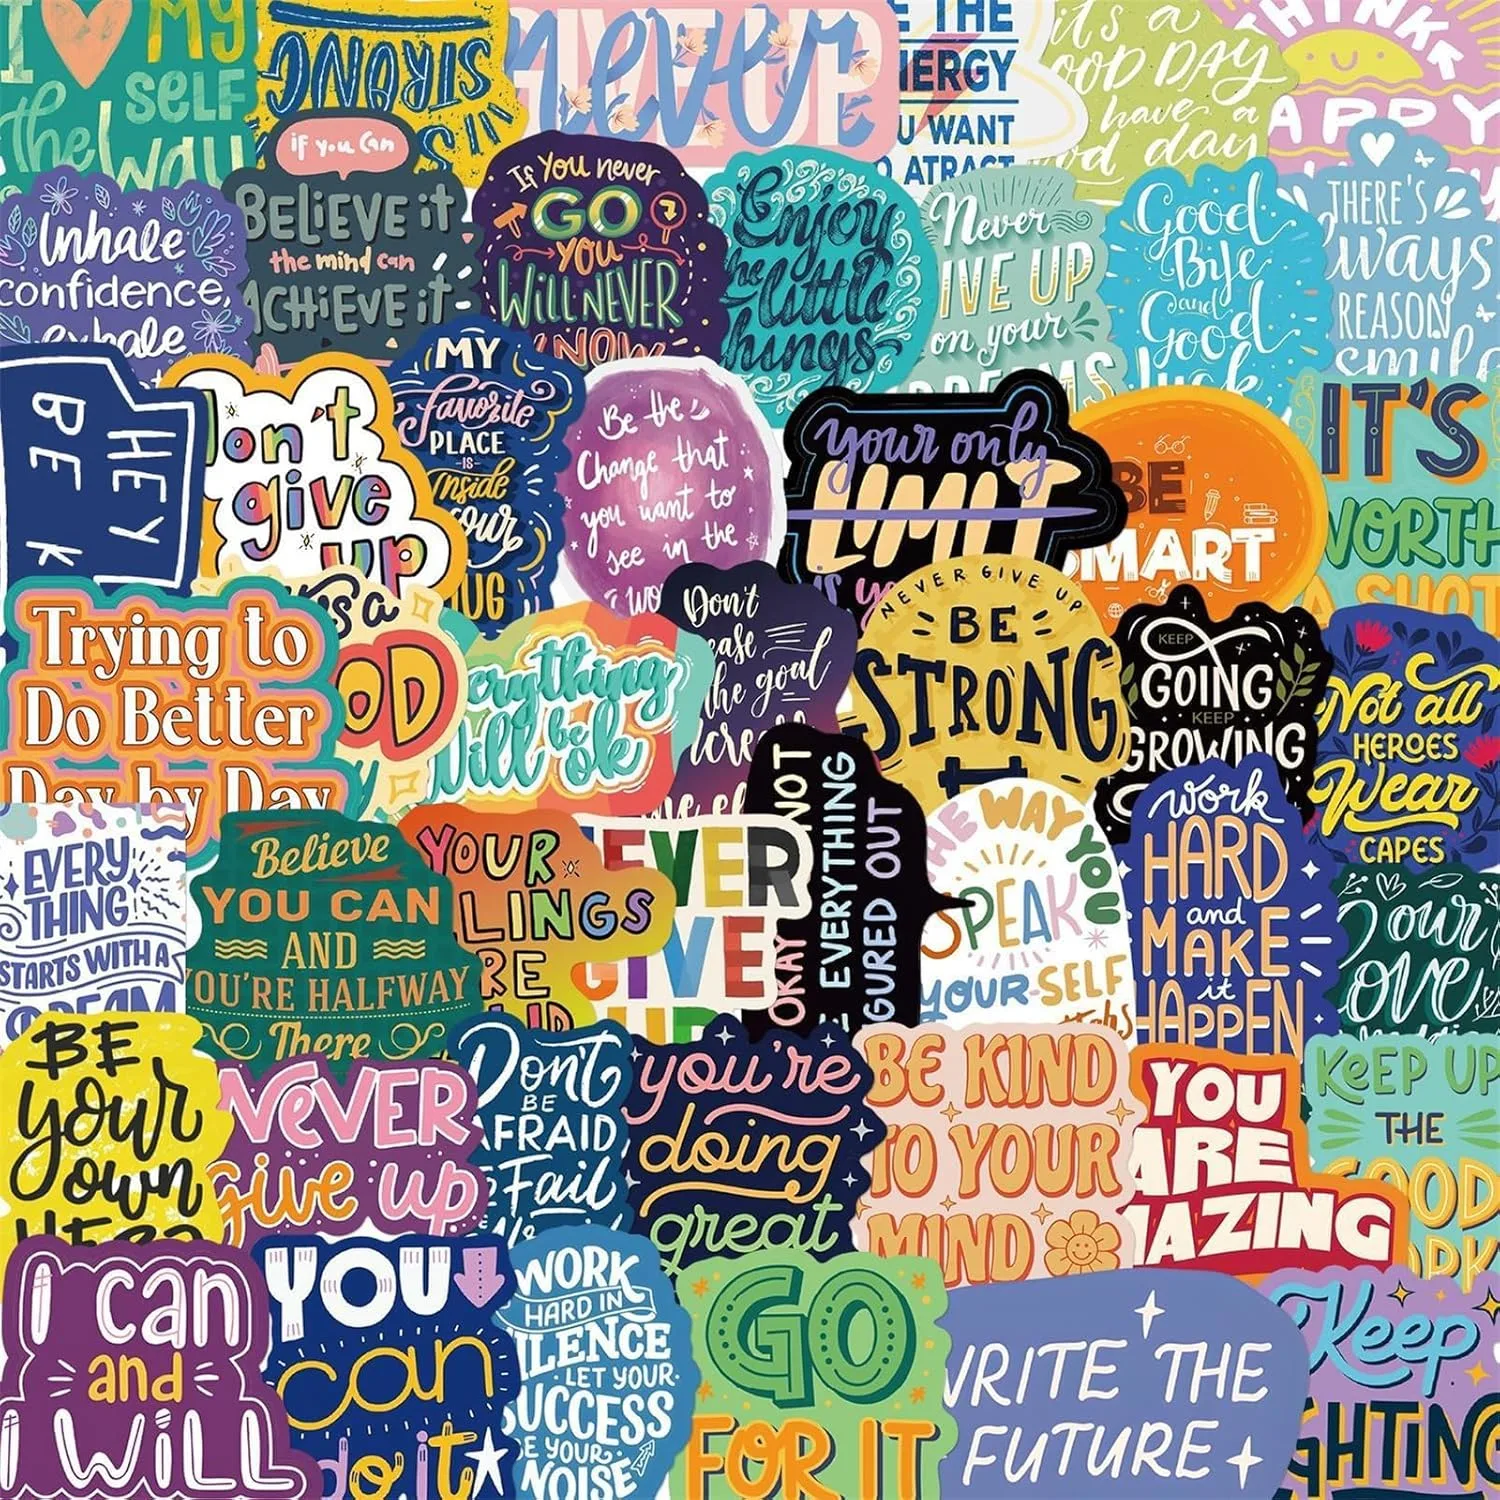 I MY
SELF
the way
STRONG
IT'S
GIVE UP
never
THE
WANT
ATRACT
it's a
DAY
have a
day
THINK
Inhale
confidence,
exhale
if you can
BELiEVE iT
the mind can
ACHiEVE iT
If You never
GO
you
WILL NEVER
KNOW
Enjoy
the little
things
Never
GIVE UP
on your
DREAMS
Good
Bye
and
Good
luck
THERE'S
always
REASON
smile
HEY
BE K
Don't
give
up
MY
favorite
PLACE
-IS-
inside
your
HUG
Be the
Change that
you want to
see in the
your only
LIMIT
BE
SMART
IT'S
WORTH
A SHOT
Trying to
Do Better
Day by Day
a
everything
will be
ok
Don't
the goal
NEVER GIVE UP
BE
STRONG
KEEP
GOING
KEEP
GROWING
Not all
HEROES
Wear
CAPES
EVERY
THING
STARTS WITH A
DREAM
Believe
YOU CAN
AND
YOU'RE HALFWAY
There
YOUR
RE
NEVER
GIVE
UP
NOT
EVERYTHING
OUT
OKAY
THE WAY YOU
SPEAK
YOUR-SELF
work
HARD
and
MAKE
it
HAPPEN
BE
your
own
HERO
NEVER
Give up
Don't
BE
AFRAID
Fail
you're
doing
great
BE KIND
TO YOUR
MIND
YOU
ARE
AMAZING
KEEP UP
THE
GOOD
WORK
I can
and
I WILL
YOU
can
do it
WORK
HARD IN
SILENCE
LET YOUR
SUCCESS
BE YOUR
NOISE
GO
FOR IT
WRITE THE
FUTURE
Keep